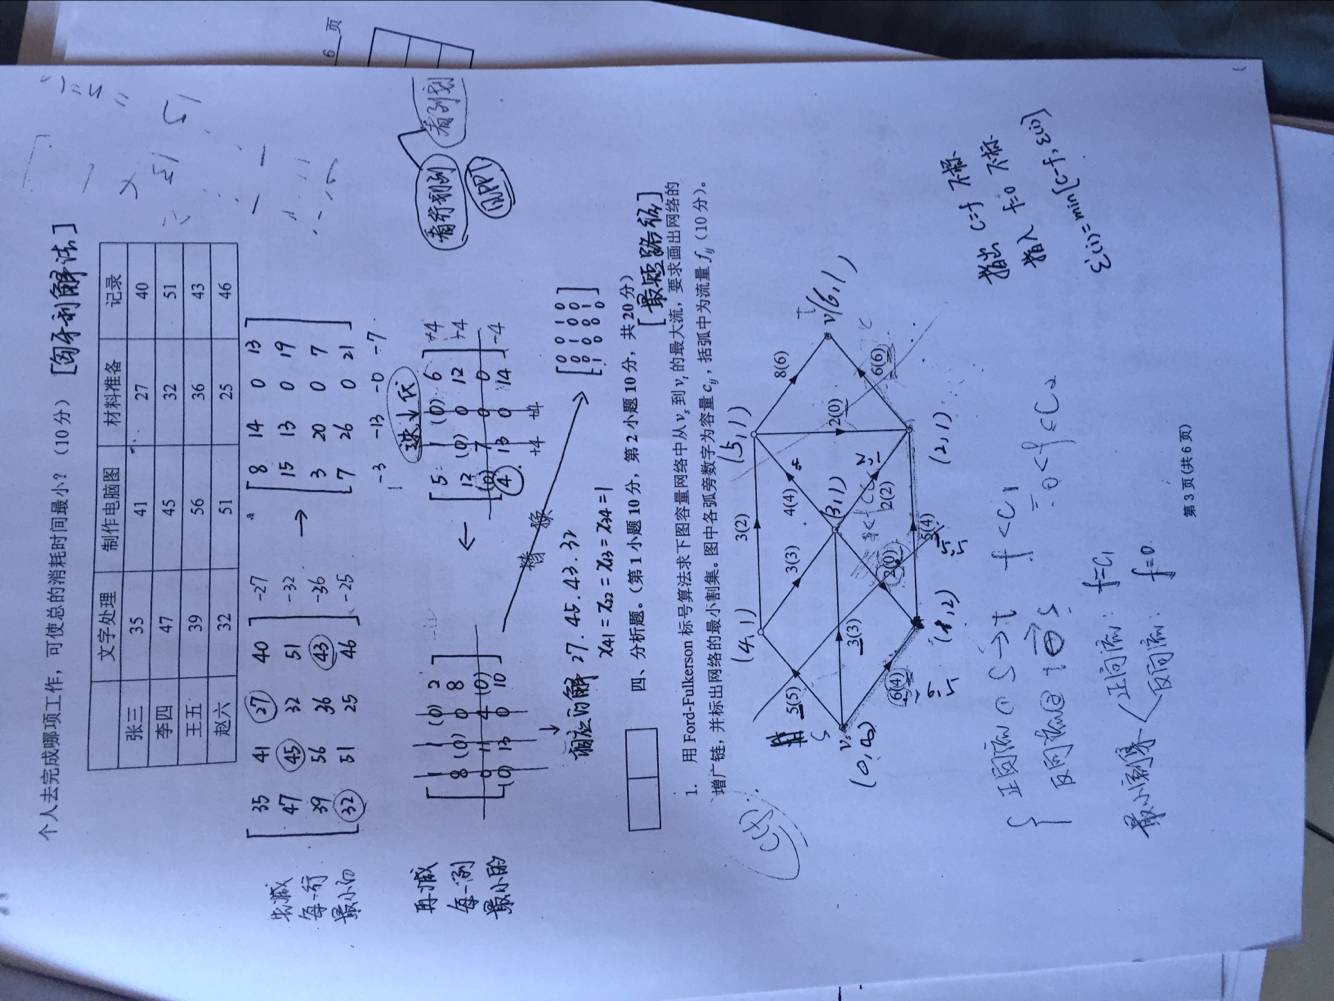 个人去完成哪项工作，可使总的消耗时间最小？（10 分） [匈牙利解法]
文字处理 制作电脑图 材料准备 记录
张三 35 41 27 40
李四 47 45 32 51
王五 39 56 36 43
赵六 32 51 25 46
先减
每一行
最小的
35 41 27 40 -27
47 45 32 51 -32
39 56 36 43 -36
32 51 25 46 -25
→
8 14 0 13
15 13 0 19
3 20 0 7
7 26 0 21
-3 -13 -0 -7
迭↓代
再减
每一列
最小的
1 1 (0) 2
8 (0) 0 8
0 11 4 (0)
(0) 13 0 10
←
5 1 (0) 6 +4
12 (0) 0 12 +4
(0) 7 0 0 -4
4 13 0 14
+4 +4
看行划列
看列划
见PPT
替换
相应的解 27.45.43.32
x41 = x22 = x13 = x34 = 1
0 0 1 0
0 1 0 0
0 0 0 1
1 0 0 0
四、分析题。（第 1 小题 10 分，第 2 小题 10 分，共 20 分）
[最短路径]
1. 用 Ford-Fulkerson 标号算法求下图容量网络中从 vs 到 vt 的最大流，要求画出网络的
增广链，并标出网络的最小割集。图中各弧旁数字为容量 cij，括弧中为流量 fij（10 分）。
c(f):
(4,1) 3(2) (5,1)
5(5) 3(3) 4(4) 8(6)
S
vs 3(3) (3,1) 2(0) v(6,1)
(0,∞)
6(4) 2(0) 2(2) 6(6)
5(4)
(1,2) (2,1)
正向流① S→t f<c1
反向流② t→S 0<f<c2
指出 c=f 不标
指入 f=0 不标
ε(i)=min[c-f, ε(i)]
最小割集
正向流: f=c1
反向流: f=0
第 3 页(共 6 页)
6 页